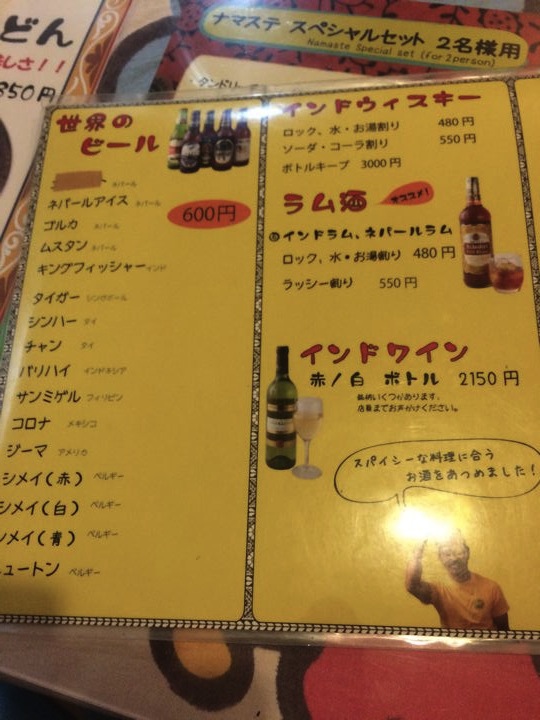 どん
しさ！！
850円
ナマステ スペシャルセット 2名様用
Namaste Special set (for 2person)
タンドリー
世界の
ビール
ネパール
ネパールアイス ネパール
ゴルカ ネパール
ムスタン ネパール
キングフィッシャー インド
600円
タイガー シンガポール
シンハー タイ
チャン タイ
バリハイ インドネシア
サンミゲル フィリピン
コロナ メキシコ
ジーマ アメリカ
シメイ(赤) ベルギー
シメイ(白) ベルギー
シメイ(青) ベルギー
ュートン ベルギー
インドウィスキー
ロック、水・お湯割り 480円
ソーダ・コーラ割り 550円
ボトルキープ 3000円
ラム酒
オススメ!
インドラム、ネパールラム
ロック、水・お湯割り 480円
ラッシー割り 550円
インドワイン
赤/白 ボトル 2150円
銘柄いくつかあります。
店員までお声がけください。
スパイシーな料理に合う
お酒をあつめました!